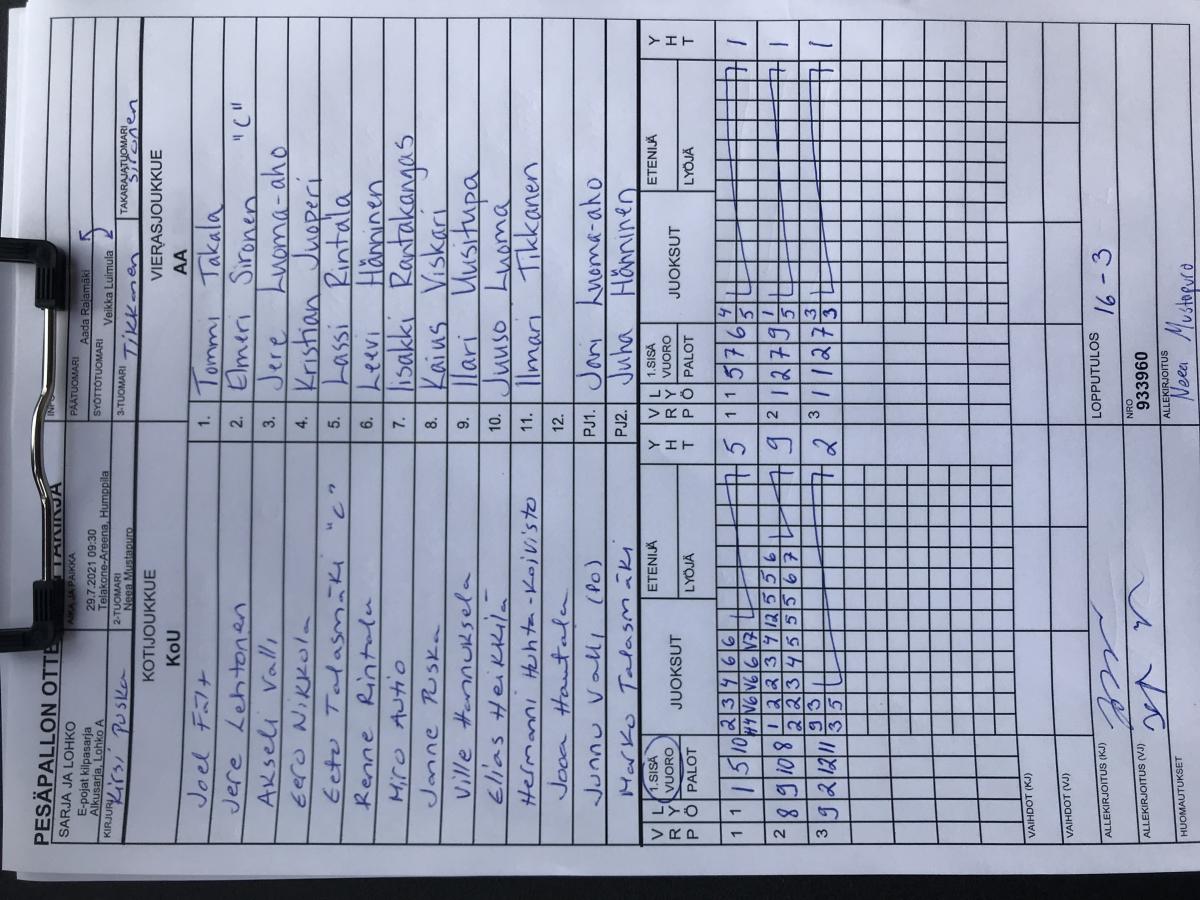 PESÄPALLON OTTE
SARJA JA LOHKO
E-pojat kilpasarja
Alkusarja, Lohko A
AIKA JA PAIKKA
29.7.2021 09:30
Telakone-Areena, Humppila
PÄÄTUOMARI Aada Rajamäki
SYÖTTÖTUOMARI Veikka Luimula
KIRJURI Kirsi Puska
2-TUOMARI
Neea Mustapuro
3-TUOMARI Tikkanen
TAKARAJATUOMARI Sironen
KOTIJOUKKUE
KoU
VIERASJOUKKUE
AA
Joel Fält 1. Tommi Takala
Jere Lehtonen 2. Elmeri Sironen "C"
Akseli Valli 3. Jere Luoma-aho
Eero Nikkola 4. Kristian Juoperi
Eeto Talasmäki "C" 5. Lassi Rintala
Renne Rintala 6. Leevi Hänninen
Miro Autio 7. Iisakki Rantakangas
Janne Puska 8. Kaius Viskari
Ville Hannuksela 9. Ilari Uusitupa
Elias Heikkilä 10. Juuso Luoma
Hermanni Huhta-Koivisto 11. Ilmari Tikkanen
Jooa Hautala 12.
Junnu Valli (PO) PJ1. Jari Luoma-aho
Marko Talasmäki PJ2. Juha Hänninen
V R P L Y Ö 1.SISÄ VUORO PALOT JUOKSUT ETENIJÄ LYÖJÄ Y H T V R P L Y Ö 1.SISÄ VUORO PALOT JUOKSUT ETENIJÄ LYÖJÄ Y H T
2 3 4 6 6 4
1 1 1 5 10 H4 V6 V6 V6 V7 5 1 1 5 7 6 5 1
1 2 2 3 4 12 5 5 6 1
2 8 9 10 8 2 2 3 4 5 5 5 6 7 9 2 1 2 7 9 5 1
9 3 3
3 9 2 12 11 3 5 2 3 1 1 2 7 3 1
VAIHDOT (KJ)
VAIHDOT (VJ)
ALLEKIRJOITUS (KJ)
LOPPUTULOS 16 - 3
ALLEKIRJOITUS (VJ)
NRO
933960
HUOMAUTUKSET
ALLEKIRJOITUS
Neea Mustapuro